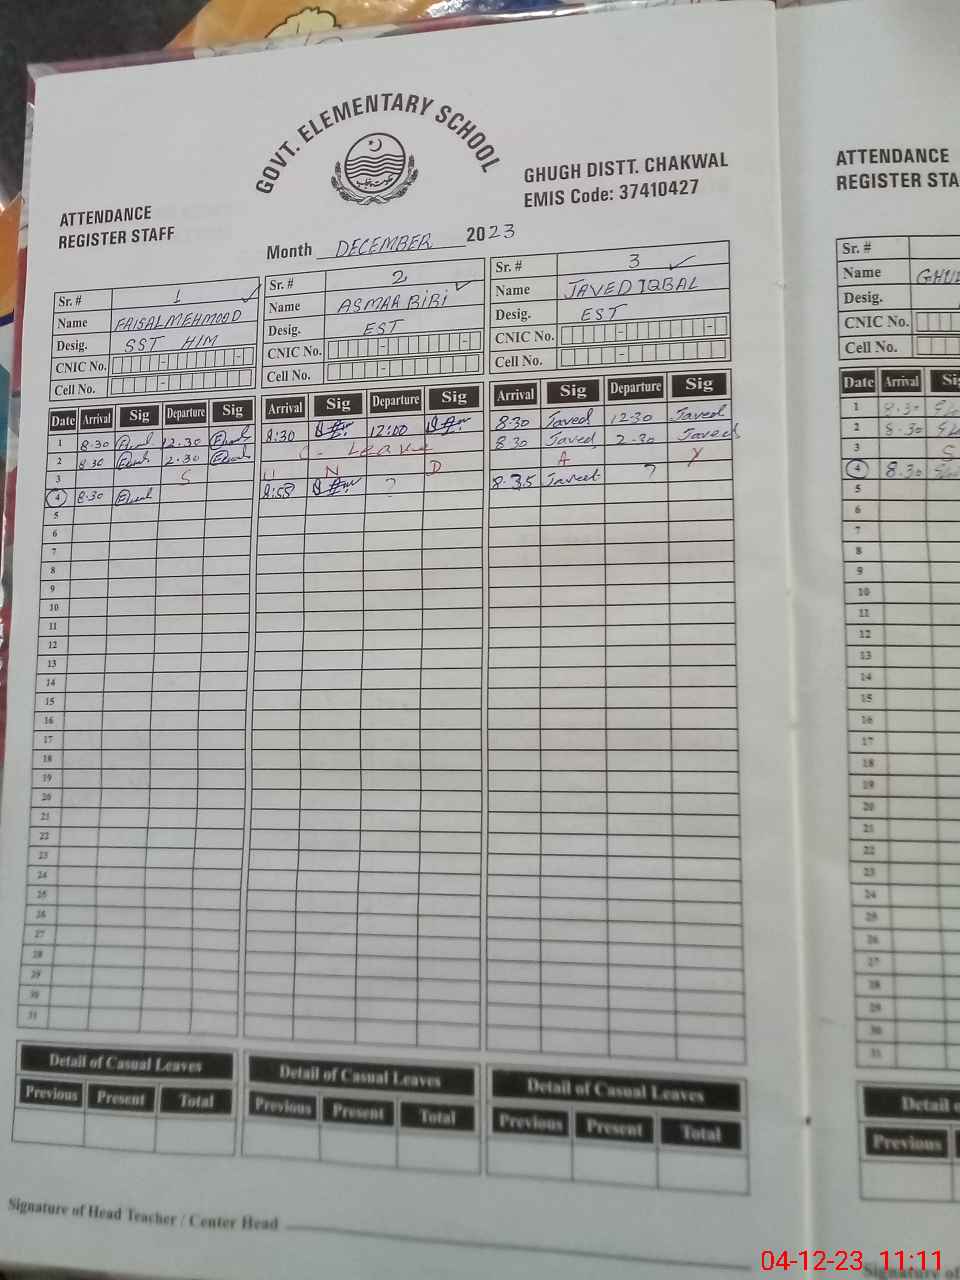 GOVT. ELEMENTARY SCHOOL
GHUGH DISTT. CHAKWAL
EMIS Code: 37410427
ATTENDANCE
REGISTER STAFF
Month DECEMBER 2023
Sr. # 1 Sr. # 2 Sr. # 3
Name FAISAL MEHMOOD Name ASMAA BIBI Name JAVED IQBAL
Desig. SST HIM Desig. EST Desig. EST
CNIC No. CNIC No. CNIC No.
Cell No. Cell No. Cell No.
Date Arrival Sig Departure Sig Arrival Sig Departure Sig Arrival Sig Departure Sig
1 8.30 12.30 8:30 12:00 8.30 Javed 12.30 Javed
2 8.30 2.30 C- Leave 8.30 Javed 2.30 Javed
3 S U N D A Y
4 8.30 8:58 ? 8.35 Javed ?
5
6
7
8
9
10
11
12
13
14
15
16
17
18
19
20
21
22
23
24
25
26
27
28
29
30
31
Detail of Casual Leaves Detail of Casual Leaves Detail of Casual Leaves
Previous Present Total Previous Present Total Previous Present Total
Signature of Head Teacher / Center Head
ATTENDANCE
REGISTER STA
Sr. #
Name GHUL
Desig.
CNIC No.
Cell No.
Date Arrival Sig
1 8.30
2 8.30
3 S
4 8.30
5
6
7
8
9
10
11
12
13
14
15
16
17
18
19
20
21
22
23
24
25
26
27
28
29
30
31
Detail o
Previous
Signature of
04-12-23 11:11